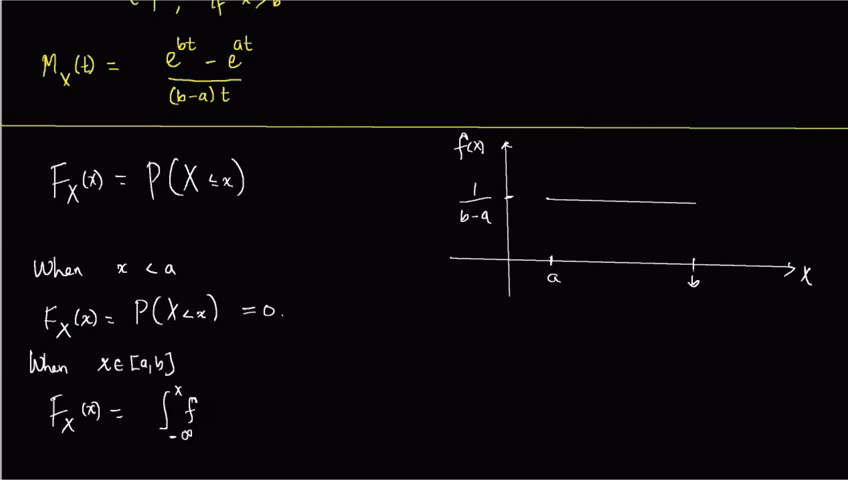 if x > b
M_X(t) = (e^{bt} - e^{at}) / ((b-a)t)
F_X(x) = P(X ≤ x)
When x < a
F_X(x) = P(X < x) = 0.
When x ∈ [a,b]
F_X(x) = ∫_{-∞}^{x} f
f(x)
1/(b-a)
a
b
X